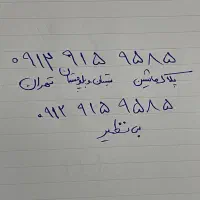 ۰۹۱۲ ۹۱۵ ۹۵۸۵
پلاک ماشین سیستان و بلوچستان تهران
۰۹۱۲ ۹۱۵ ۹۵۸۵
بی نظیر